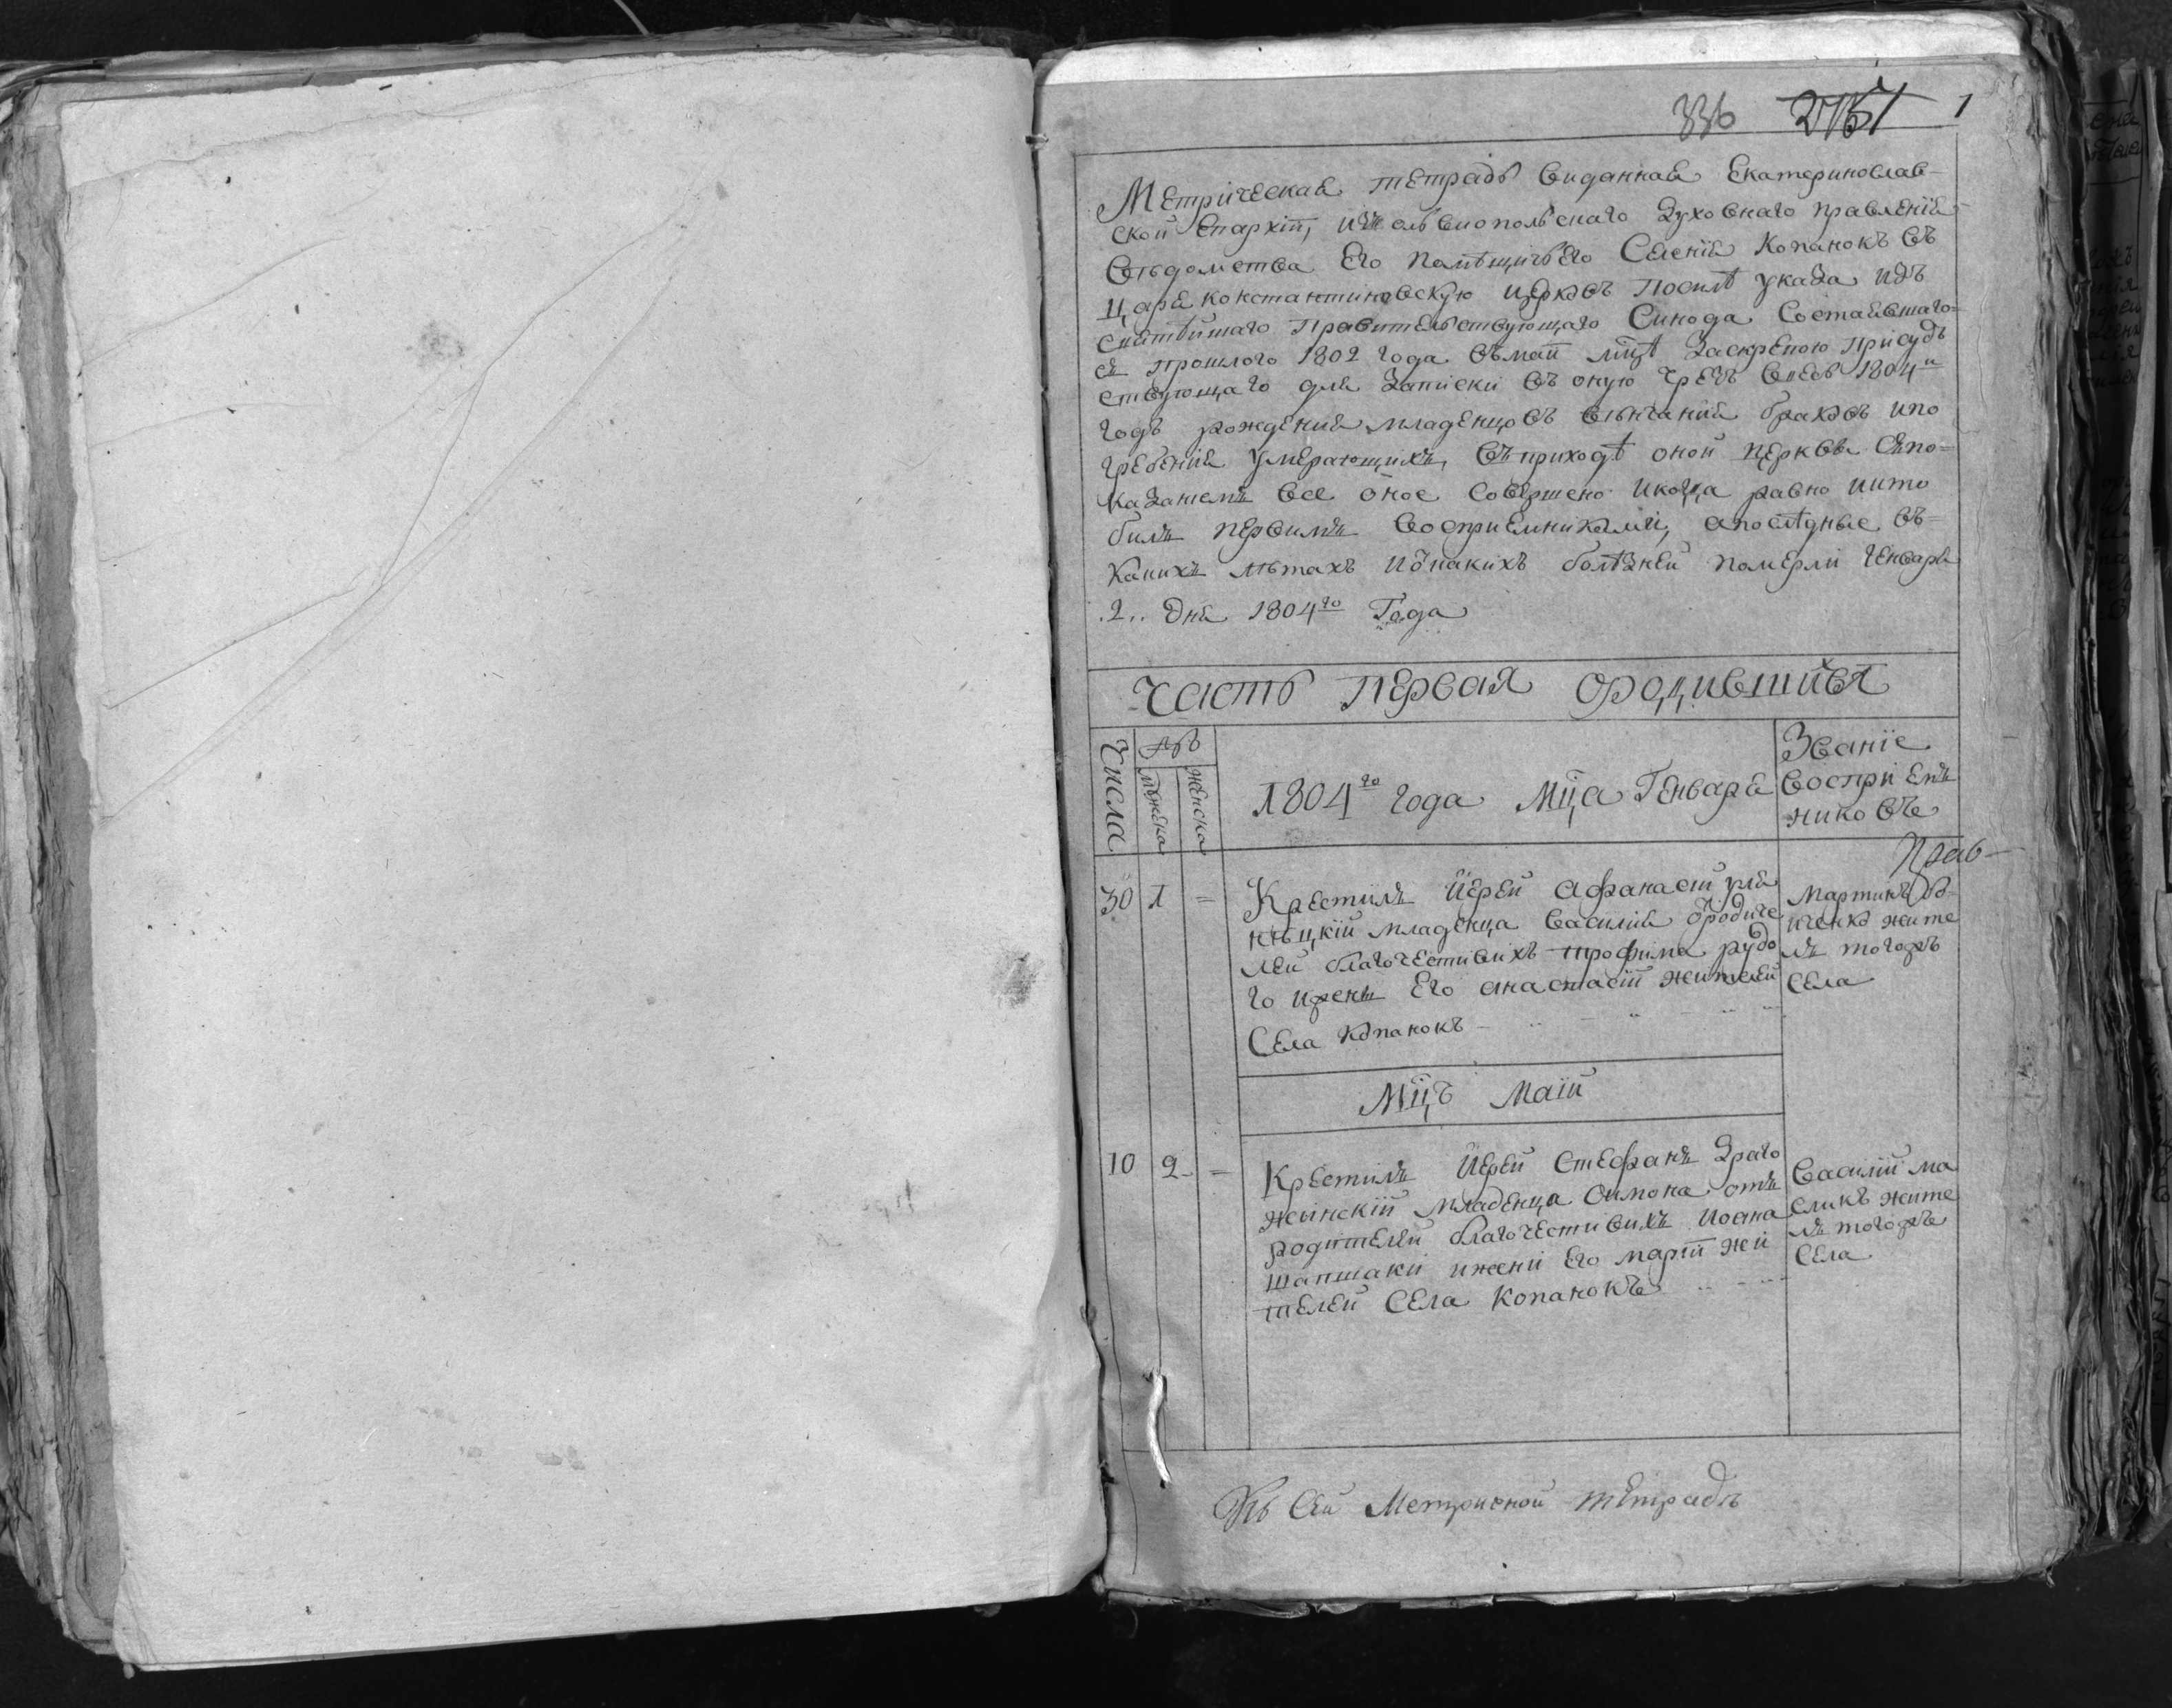 336 2151 1
Метрическая тетрадь виданная Екатеринослав-
ской Епархїи, изъ ольвиопольскаго духовнаго правленїя
вѣдомства Его помѣщичьего Селенїя Копанокъ въ
Царе константиновскую церковъ посилѣ указа изъ
святѣйшаго Правительствующаго Синода Состоявшаго=
ся прошлого 1802 года въ маїи мцѣ Заскрепою присудъ
ствующаго для Записки въ оную чрезъ весь 1804й
годъ рожденїя младенцовъ вѣнчанїя браковъ ипо
гребенїя умерающихъ, въ приходѣ оной церкви Съпо=
казанїемъ все оное Совершено икогда равно икто
билъ первимъ восприемниками, апослѣдные въ=
какихъ лѣтахъ и какихъ болѣзней померли Генваря
.2.. дня 1804го Года
Часть первая ородившийся
Числа
мужеска
женска
1804го года Мца Генваря
Званїе
воспрїем
никовъ
Прав-
30 1 =
Крестилъ Їерей Афанасїй
нѣцкїй младенца Василїя
лей благочестивихъ трофима рудо
го ижени Его анастасїи жителей
Села копанокъ
Мартинъ
иченко жите
лъ тогожъ
Села
Мцъ маїй
10 2 =
Крестилъ Їерей Стефанъ Драго
жынскїй младенца Симона отъ
родителей благочестивихъ иоана
шапшаки ижени Его марїи жи
телей Села копанокъ
Василїй ма
сликъ жите
лъ тогожъ
Села
Къ Сей Метричной тетради